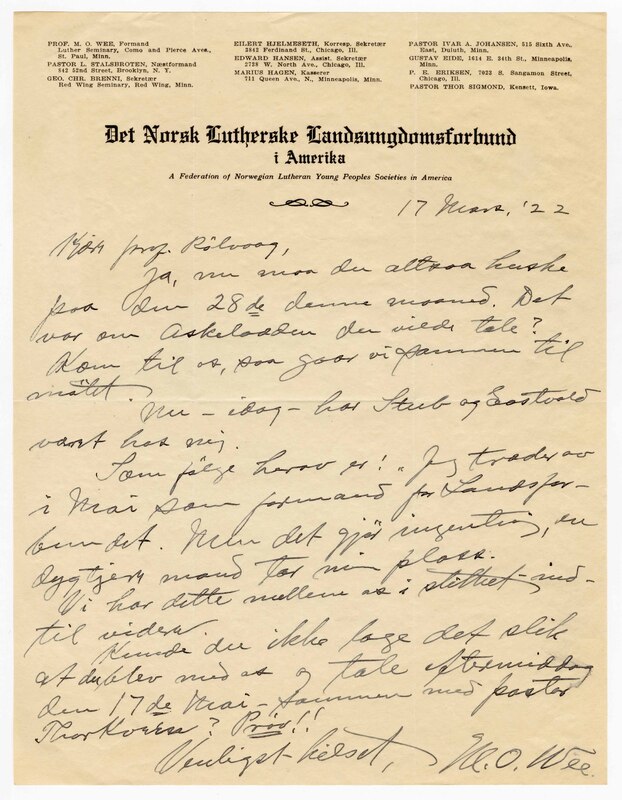 PROF. M. O. WEE, Formand
Luther Seminary, Como and Pierce Aves.,
St. Paul, Minn.
PASTOR L. STALSBROTEN, Næstformand
842 52nd Street, Brooklyn, N. Y.
GEO. CHR. BRENNI, Sekretær
Red Wing Seminary, Red Wing, Minn.
EILERT HJELMESETH, Korresp. Sekretær
2842 Ferdinand St., Chicago, Ill.
EDWARD HANSEN, Assist. Sekretær
2738 W. North Ave., Chicago, Ill.
MARIUS HAGEN, Kasserer
711 Queen Ave., N., Minneapolis, Minn.
PASTOR IVAR A. JOHANSEN, 515 Sixth Ave.,
East, Duluth, Minn.
GUSTAV EIDE, 1614 E. 34th St., Minneapolis,
Minn.
P. E. ERIKSEN, 7023 S. Sangamon Street,
Chicago, Ill.
PASTOR THOR SIGMOND, Kensett, Iowa.
Det Norsk Lutherske Landsungdomsforbund
i Amerika
A Federation of Norwegian Lutheran Young Peoples Societies in America
17 Mars, '22
Kjære prof. Rölvaag,
Ja, nu maa du altsaa huske
paa den 28de denne maaned. Det
var om Askeladden du vilde tale?
Kom til os, saa gaar vi sammen til
mötet.
Nu – idag – har Stub og Eastvold
været hos mig.
Som fölge herav er: "Jeg træder av
i Mai som formand for Landsfor-
bundet. Men det gjör ingenting, en
dygtigere mand tar min plass.
Vi har dette mellem os i stilhet ind-
til videre.
Kunde du ikke lage det slik
at du blev med os og tale eftermiddag
den 17de Mai – sammen med pastor
Thorkveen? Pröv!!
Venligst hilset,
M. O. Wee.